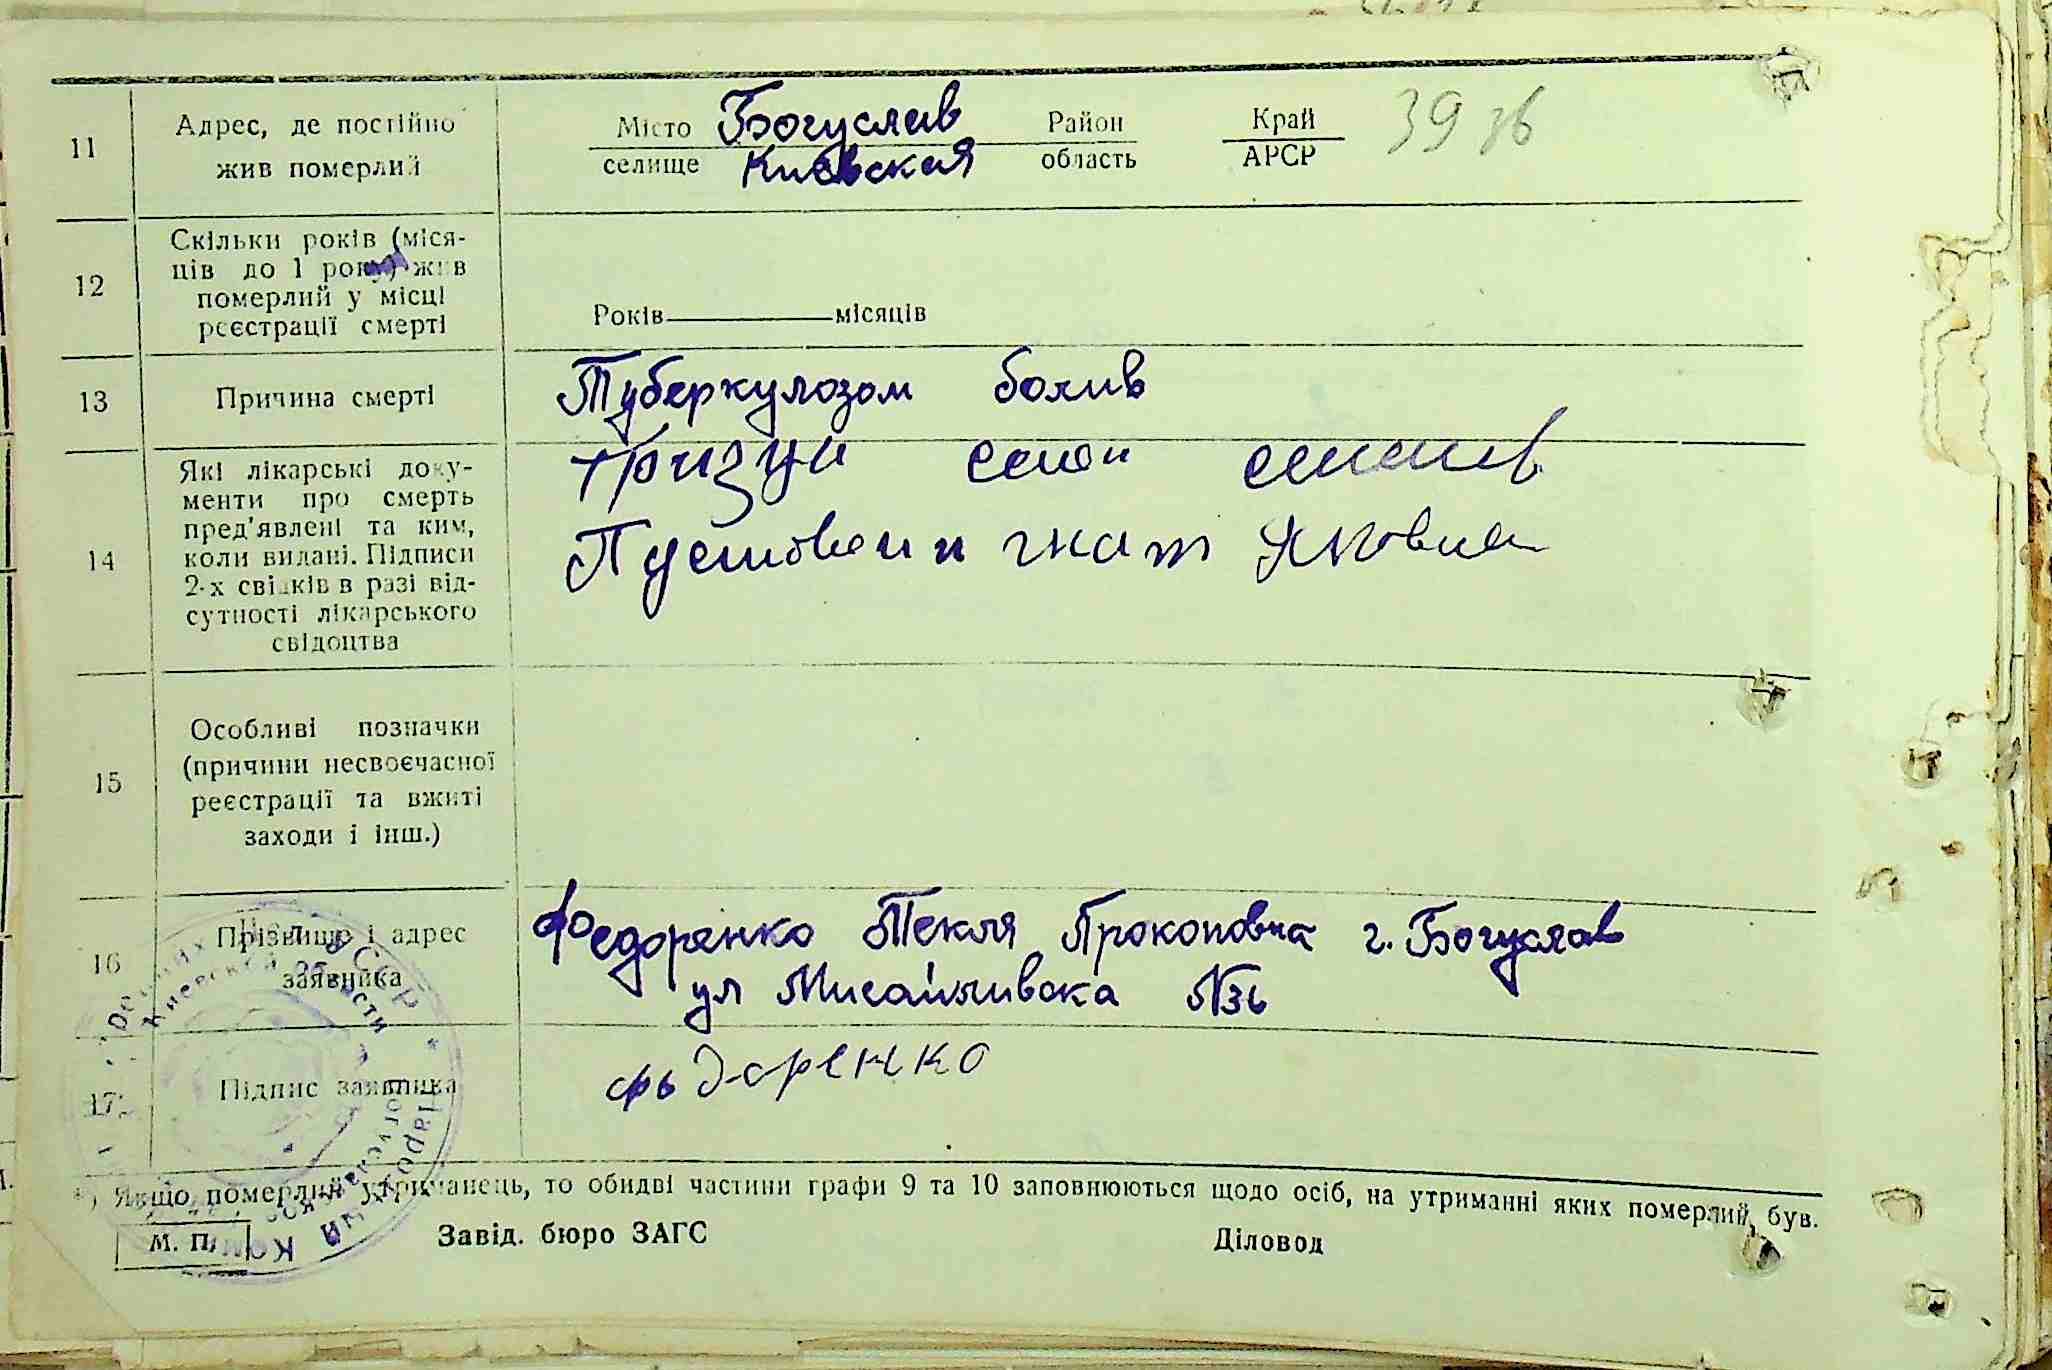 39 зв
11
Адрес, де постійно
жив померлий
Місто Богуслав Район Край
селище Киевская область АРСР
12
Скільки років (міся-
ців до 1 року) жив
померлий у місці
реєстрації смерті
Років місяців
13
Причина смерті
Туберкулозом болив
14
Які лікарські доку-
менти про смерть
пред'явлені та ким,
коли видані. Підписи
2-х свідків в разі від-
сутності лікарського
свідоцтва
15
Особливі позначки
(причини несвоєчасної
реєстрації та вжиті
заходи і інш.)
16
Прізвище і адрес
заявника
Федоренко Текля Прокоповна г. Богуслав
ул
17
Підпис заявника
Фьдоренко
*) Якщо померлий утриманець, то обидві частини графи 9 та 10 заповнюються щодо осіб, на утриманні яких померлий був.
М. П.
Завід. бюро ЗАГС
Діловод
Киевской области